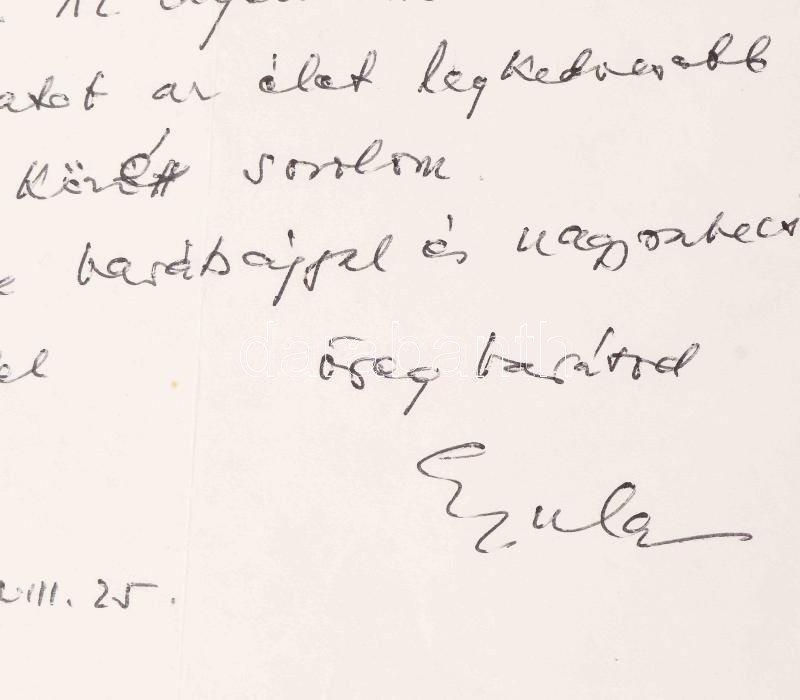 az élet legkedvesebb
között sorolom
barátsággal és nagyrabecs
öreg barátod
Gyula
VIII. 25.